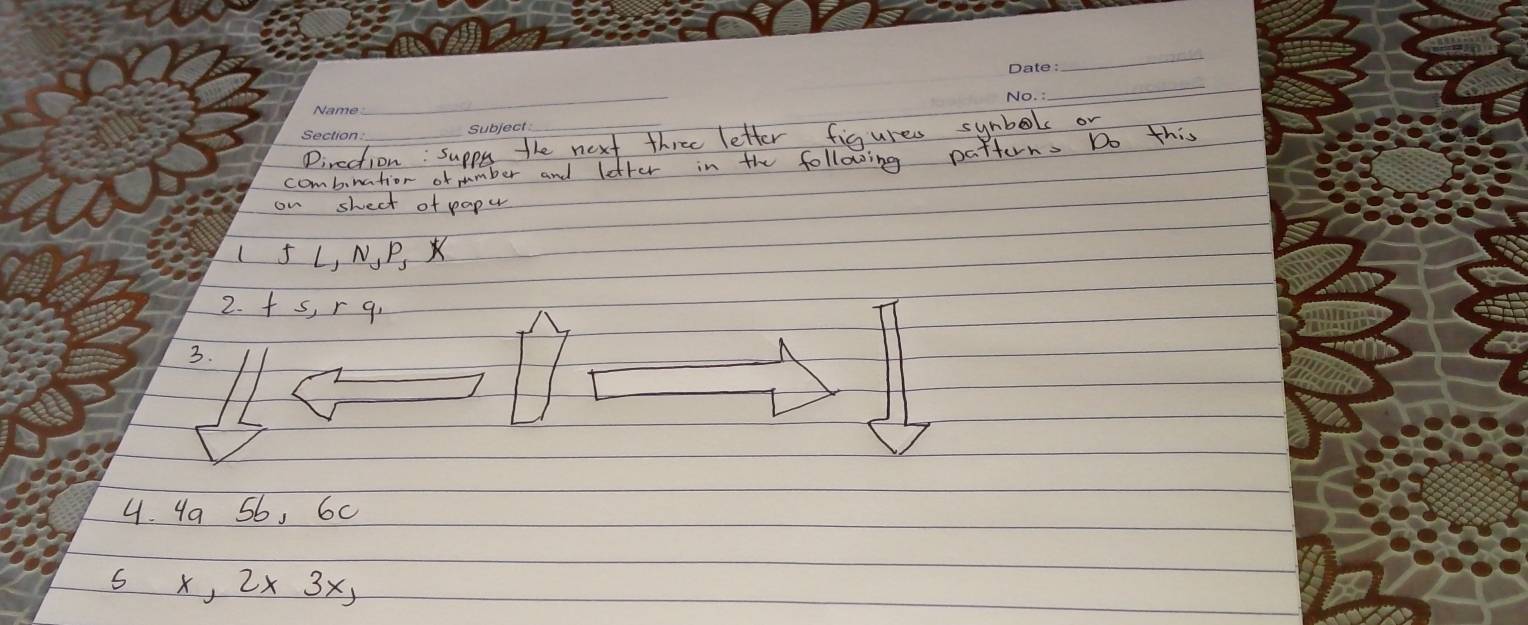 Date:
Name:
No.:
Section: Subject:
Direction : suppy the next three letter figures synbols or
combination of number and letter in the following patterns Do this
on sheet of paper
1 J L, N, P,
2. t s, r q,
3.
4. 4a 5b, 6c
5 x, 2x 3x,